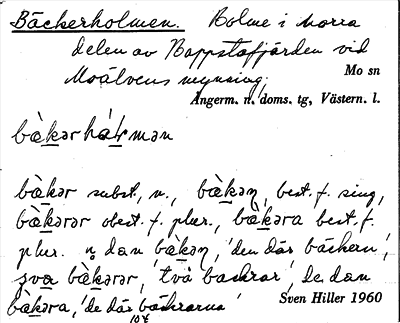 Bäckerholmen. Holme i norra
delen av Happstafjärden vid
Moälvens mynning;
Mo sn
Ångerm. n. doms. tg, Västern. l.
bàkərhɷ́lmən
bàkər subst., n., bàkən, best. f. sing.,
bàkərər obest. f. plur., bàkəra best. f.
plur. dan bàkən, 'den där bäckern',
bàkərər, 'två backrar', dan
bàkəra, 'de där bäckrarna'
Sven Hiller 1960